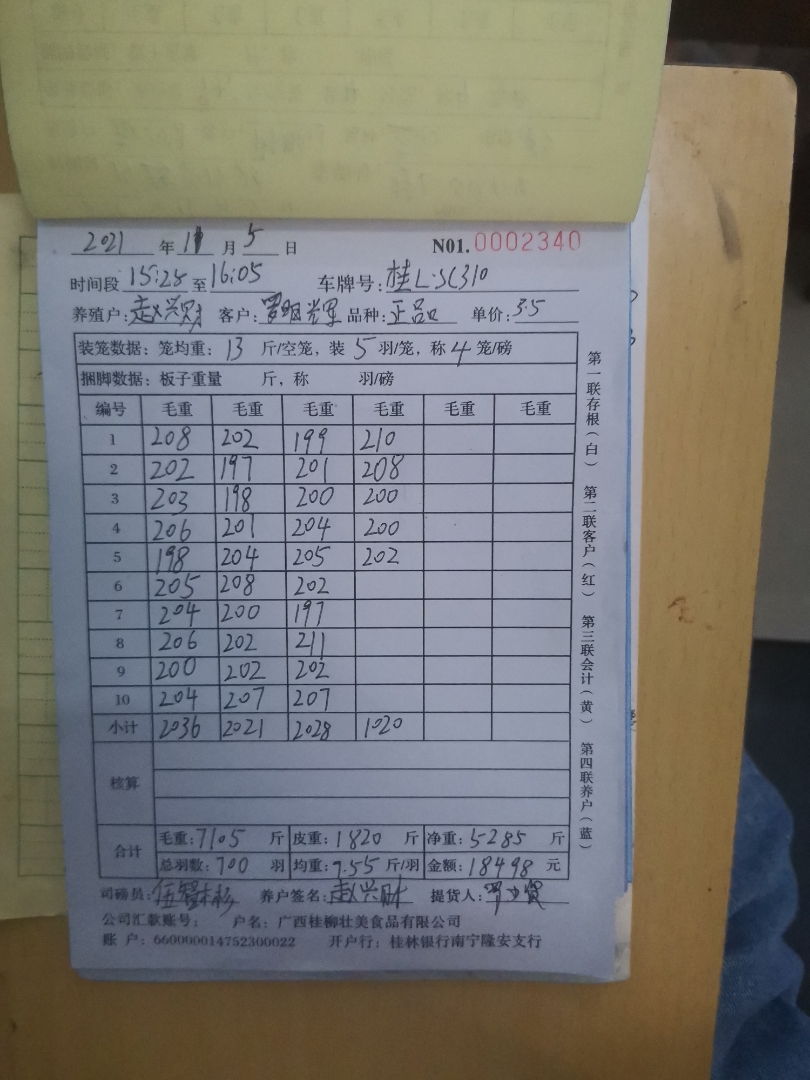 2021 年 11 月 5 日 N01. 0002340
时间段 15:25 至 16:05 车牌号: 桂L·SC310
养殖户: 赵兴财 客户: 罗明辉 品种: 正品 单价: 3.5
装笼数据: 笼均重: 13 斤/空笼, 装 5 羽/笼, 称 4 笼/磅
捆脚数据: 板子重量 斤, 称 羽/磅
编号 毛重 毛重 毛重 毛重 毛重 毛重
1 208 202 199 210
2 202 197 201 208
3 203 198 200 200
4 206 201 204 200
5 198 204 205 202
6 205 208 202
7 204 200 197
8 206 202 211
9 200 202 202
10 204 207 207
小计 2036 2021 2028 1020
核算
合计 毛重: 7105 斤 皮重: 1820 斤 净重: 5285 斤
总羽数: 700 羽 均重: 7.55 斤/羽 金额: 18498 元
司磅员: 养户签名: 赵兴财 提货人:
公司汇款账号: 户名: 广西桂柳壮美食品有限公司
账 户: 660000014752300022 开户行: 桂林银行南宁隆安支行
第一联存根(白) 第二联客户(红) 第三联会计(黄) 第四联养户(蓝)